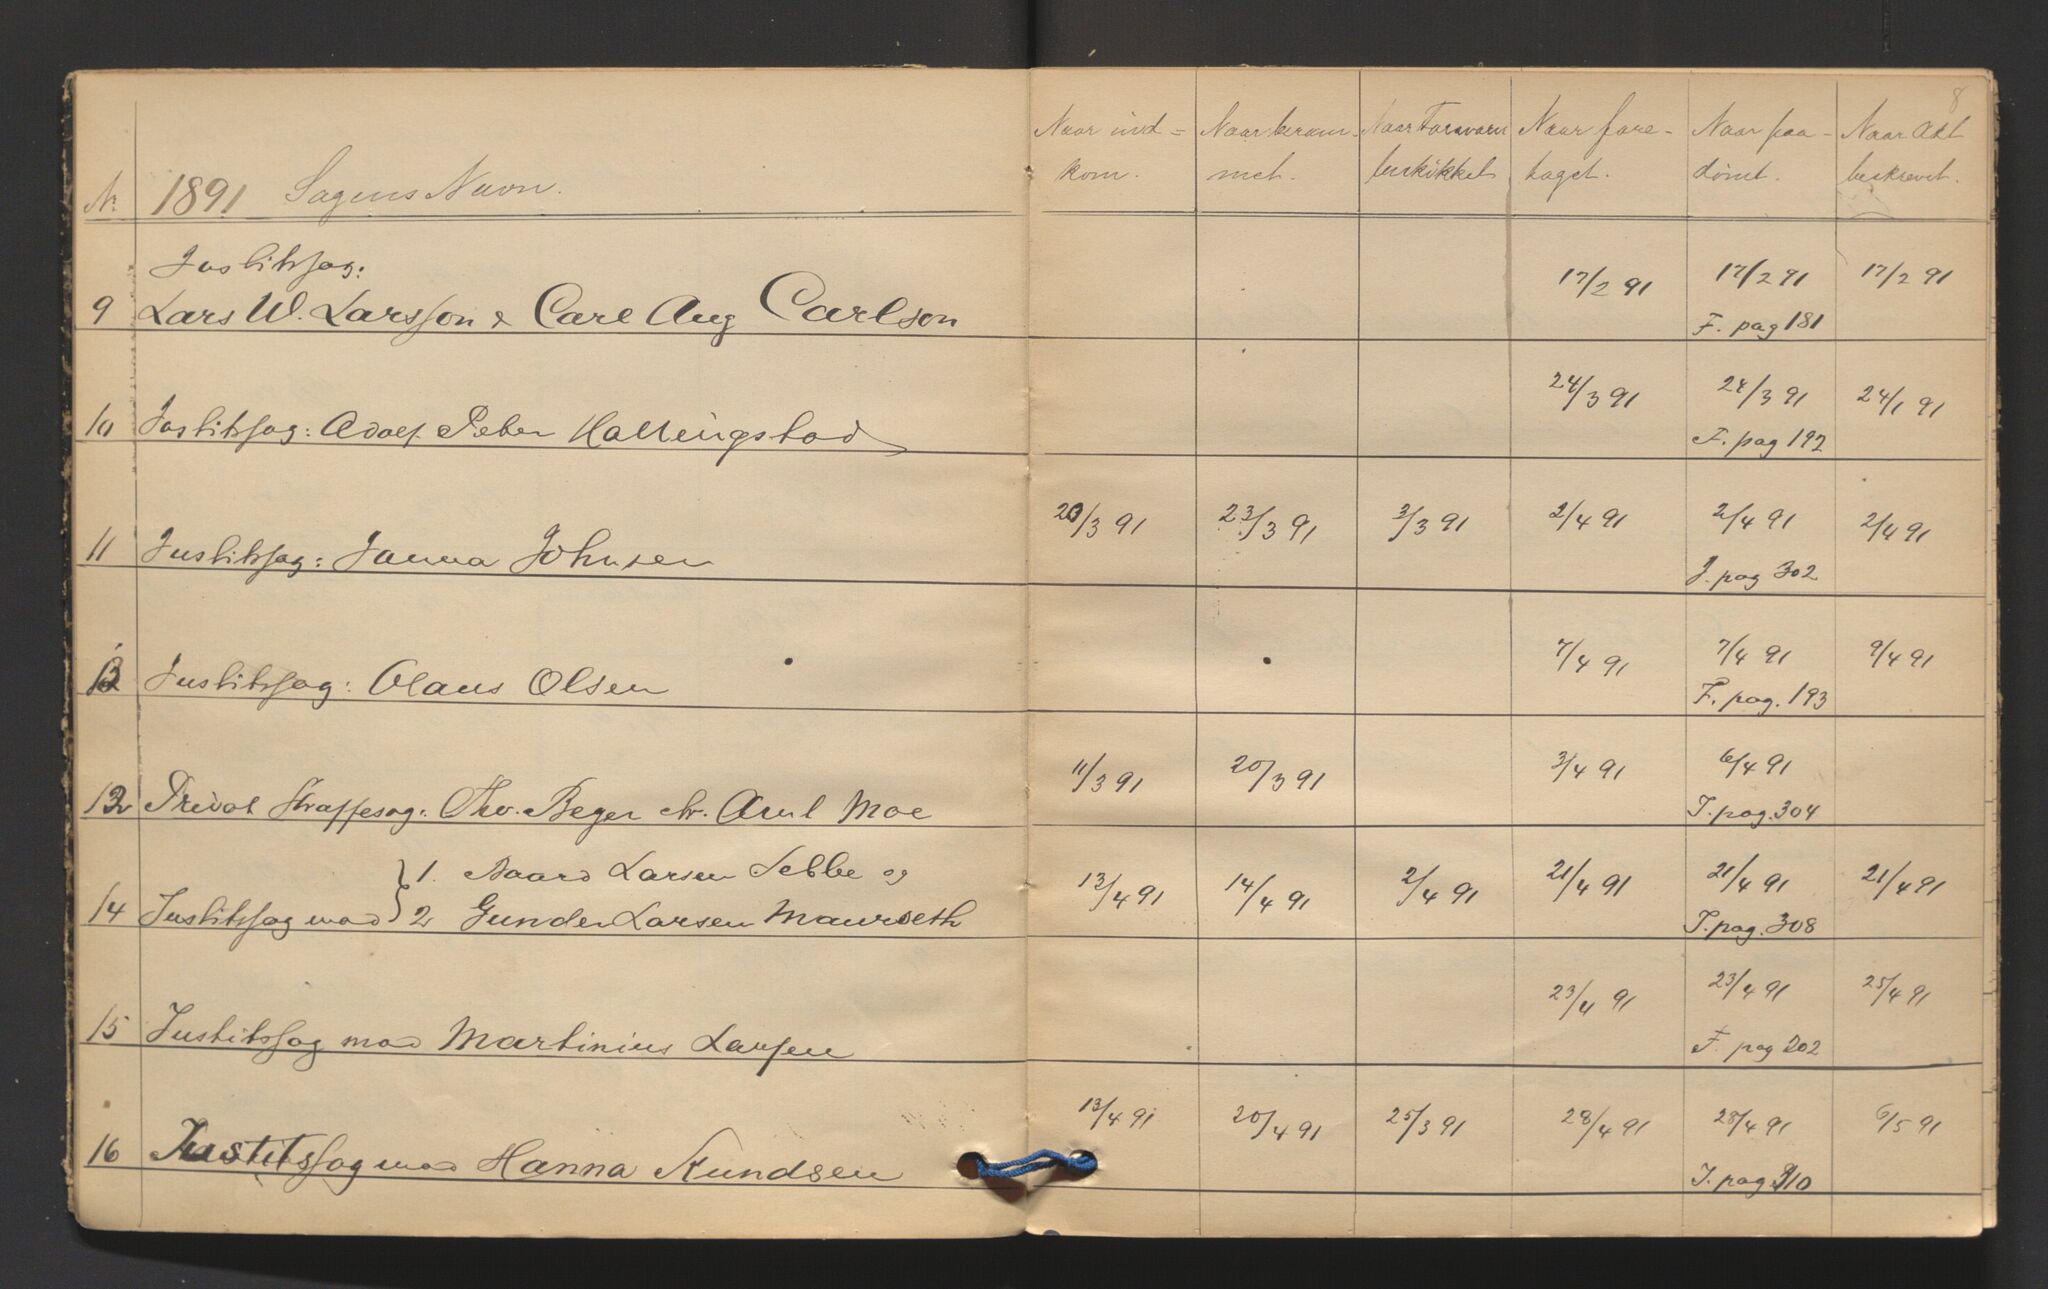 8
Nr. 1891 Sagens Navn. Naar ind= Naar beram- Naar Forsvarer Naar fore- Naar paa- Naar Akt
kom. met. beskikket taget. dømt. beskrevet.
Justitssag: 17/2 91 17/2 91 17/2 91
9 Lars W. Larsson & Carl Aug Carlson F. pag 181
24/3 91 24/3 91 24/1 91
10 Justitssag: Adolf Peter Hallingstad F. pag 192
20/3 91 23/3 91 3/3 91 2/4 91 2/4 91 2/4 91
11 Justitssag: Janna Johnsen J. pag 302
7/4 91 7/4 91 9/4 91
12 Justitssag: Olaus Olsen F. pag. 193
11/3 91 20/3 91 3/4 91 6/4 91
13 Privat Straffesag: Thv. Beyer ctr. Axel Moe J. pag. 304
1. Larsen Sebbe og 13/4 91 14/4 91 2/4 91 21/4 91 21/4 91 21/4 91
14 Justitssag mod 2 Gunder Larsen J. pag. 308
23/4 91 23/4 91 25/4 91
15 Justitssag mod Martinius Larsen F. pag 202
13/4 91 20/4 91 25/3 91 28/4 91 28/4 91 6/5 91
16 Justitssag mod Hanna Knudsen J. pag 310